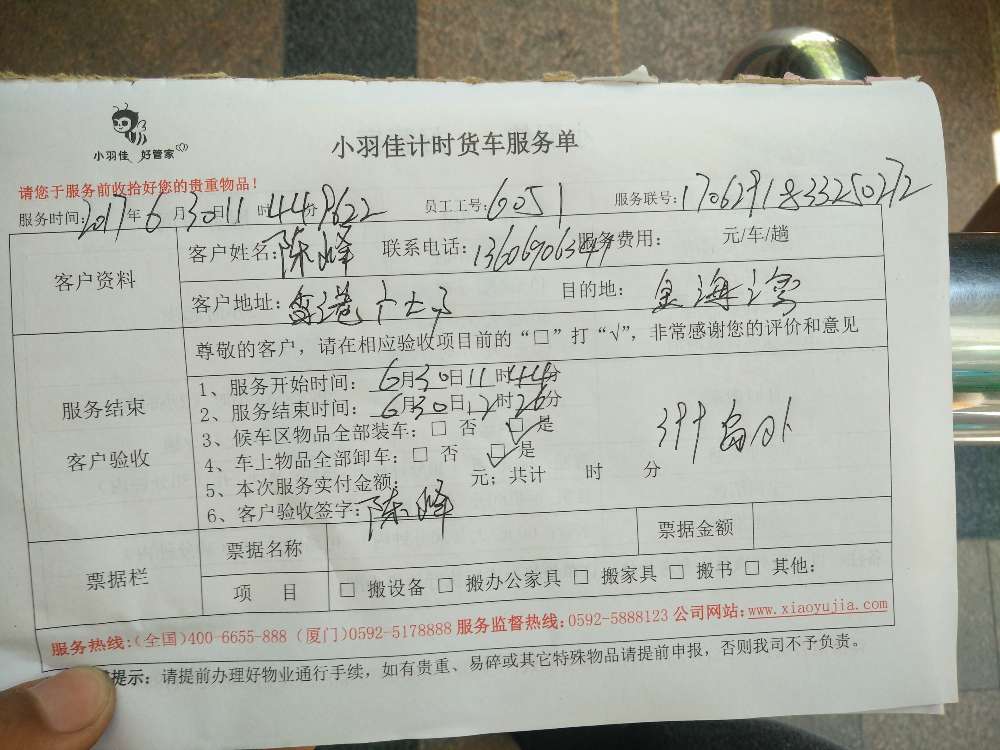 小羽佳 好管家
小羽佳计时货车服务单
请您于服务前收拾好您的贵重物品！
服务时间:2017年6月30日11时44分 9622 员工工号:6051 服务联号:
客户资料
客户姓名:陈峰 联系电话:13606906347 服务费用: 元/车/趟
客户地址: 目的地:
尊敬的客户，请在相应验收项目前的“□”打“√”，非常感谢您的评价和意见
服务结束
客户验收
1、服务开始时间: 6月30日11时44分
2、服务结束时间: 6月30日12时26分
3、候车区物品全部装车:□ 否 □是
4、车上物品全部卸车:□ 否 □是
5、本次服务实付金额: 元; 共计 时 分
6、客户验收签字:陈峰
岛外
票据栏
票据名称
票据金额
项 目
□ 搬设备 □ 搬办公家具 □ 搬家具 □ 搬书 □ 其他:
服务热线:(全国)400-6655-888 (厦门)0592-5178888 服务监督热线:0592-5888123 公司网站:www.xiaoyujia.com
提示: 请提前办理好物业通行手续，如有贵重、易碎或其它特殊物品请提前申报，否则我司不予负责。